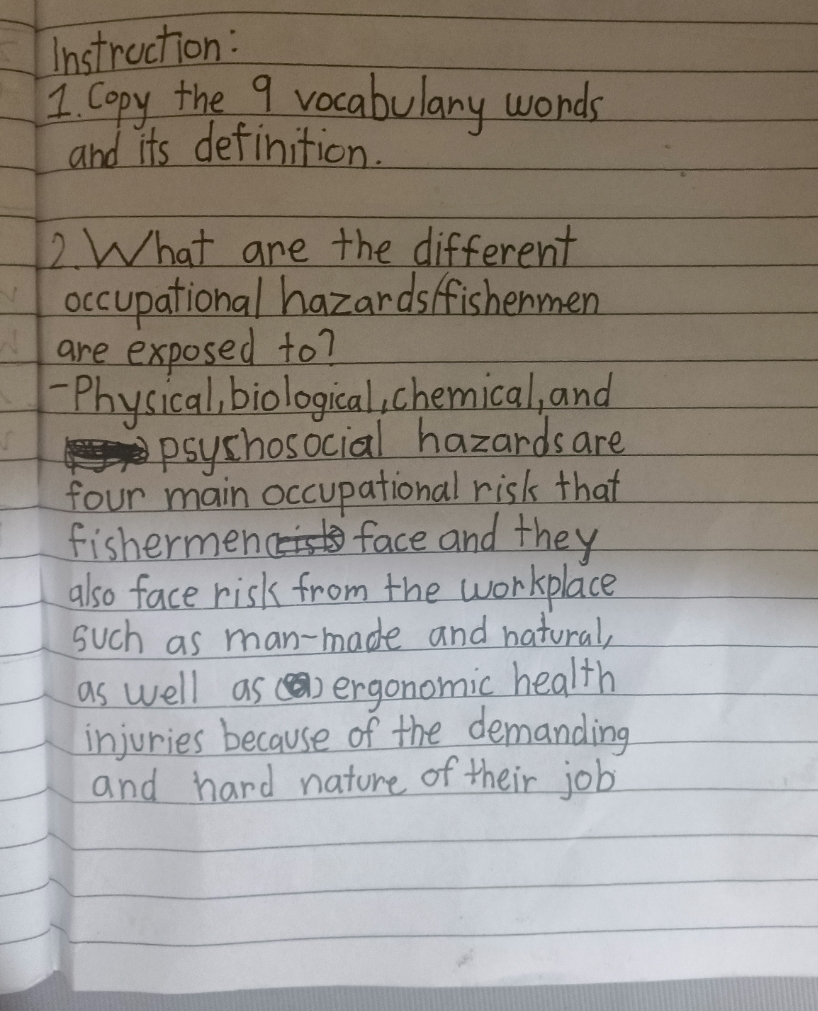 Instruction:
1. Copy the 9 vocabulany words
and its definition.
2. What are the different
occupational hazards/fishenmen
are exposed to?
-Physical, biological, chemical, and
psychosocial hazards are
four main occupational risk that
fishermen face and they
also face risk from the workplace
such as man-made and natural,
as well as (a) ergonomic health
injuries because of the demanding
and hard nature of their job